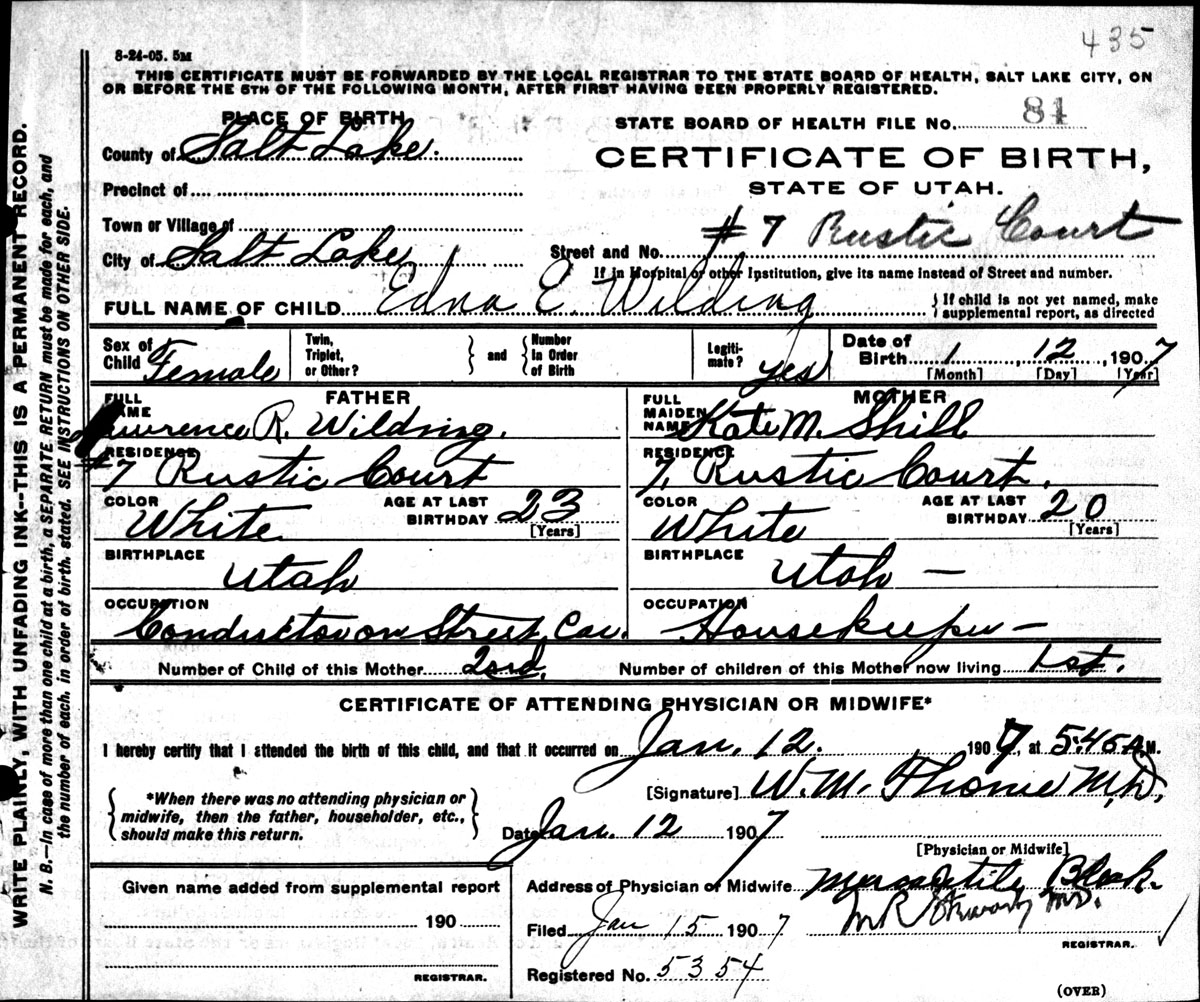 435
8-24-05. 5M
THIS CERTIFICATE MUST BE FORWARDED BY THE LOCAL REGISTRAR TO THE STATE BOARD OF HEALTH, SALT LAKE CITY, ON
OR BEFORE THE 5TH OF THE FOLLOWING MONTH, AFTER FIRST HAVING BEEN PROPERLY REGISTERED.
PLACE OF BIRTH
STATE BOARD OF HEALTH FILE No. 81
County of Salt Lake.
CERTIFICATE OF BIRTH,
Precinct of
STATE OF UTAH.
Town or Village of
City of Salt Lake
Street and No. # 7 Rustic Court
If in Hospital or other Institution, give its name instead of Street and number.
FULL NAME OF CHILD Edna E. Wilding
} If child is not yet named, make
supplemental report, as directed
Sex of Child Female
Twin, Triplet, or Other? } and { Number In Order of Birth
Legiti-mate? yes
Date of Birth 1, 12, 1907
[Month] [Day] [Year]
FATHER
FULL NAME Lawrence R. Wilding.
RESIDENCE #7 Rustic Court
COLOR White
AGE AT LAST BIRTHDAY 23
[Years]
BIRTHPLACE Utah
OCCUPATION Conductor on Street Car.
MOTHER
FULL MAIDEN NAME Kate M. Shill
RESIDENCE 7, Rustic Court.
COLOR White
AGE AT LAST BIRTHDAY 20
[Years]
BIRTHPLACE Utah —
OCCUPATION Housekeeper —
Number of Child of this Mother 2nd.
Number of children of this Mother now living 1st.
CERTIFICATE OF ATTENDING PHYSICIAN OR MIDWIFE*
I hereby certify that I attended the birth of this child, and that it occurred on Jan. 12. 1907, at 5:45 A.M.
[Signature] W. M. Thome M.D.
{ *When there was no attending physician or
midwife, then the father, householder, etc.,
should make this return. }
Date Jan. 12 1907
[Physician or Midwife]
Given name added from supplemental report
190
REGISTRAR.
Address of Physician or Midwife Mercantile Block.
Filed Jan 15 1907
M R Stewart MD.
REGISTRAR.
Registered No. 5354
(OVER)
WRITE PLAINLY, WITH UNFADING INK--THIS IS A PERMANENT RECORD.
N. B.—In case of more than one child at a birth, a SEPARATE RETURN must be made for each, and
the number of each, in order of birth, stated. SEE INSTRUCTIONS ON OTHER SIDE.